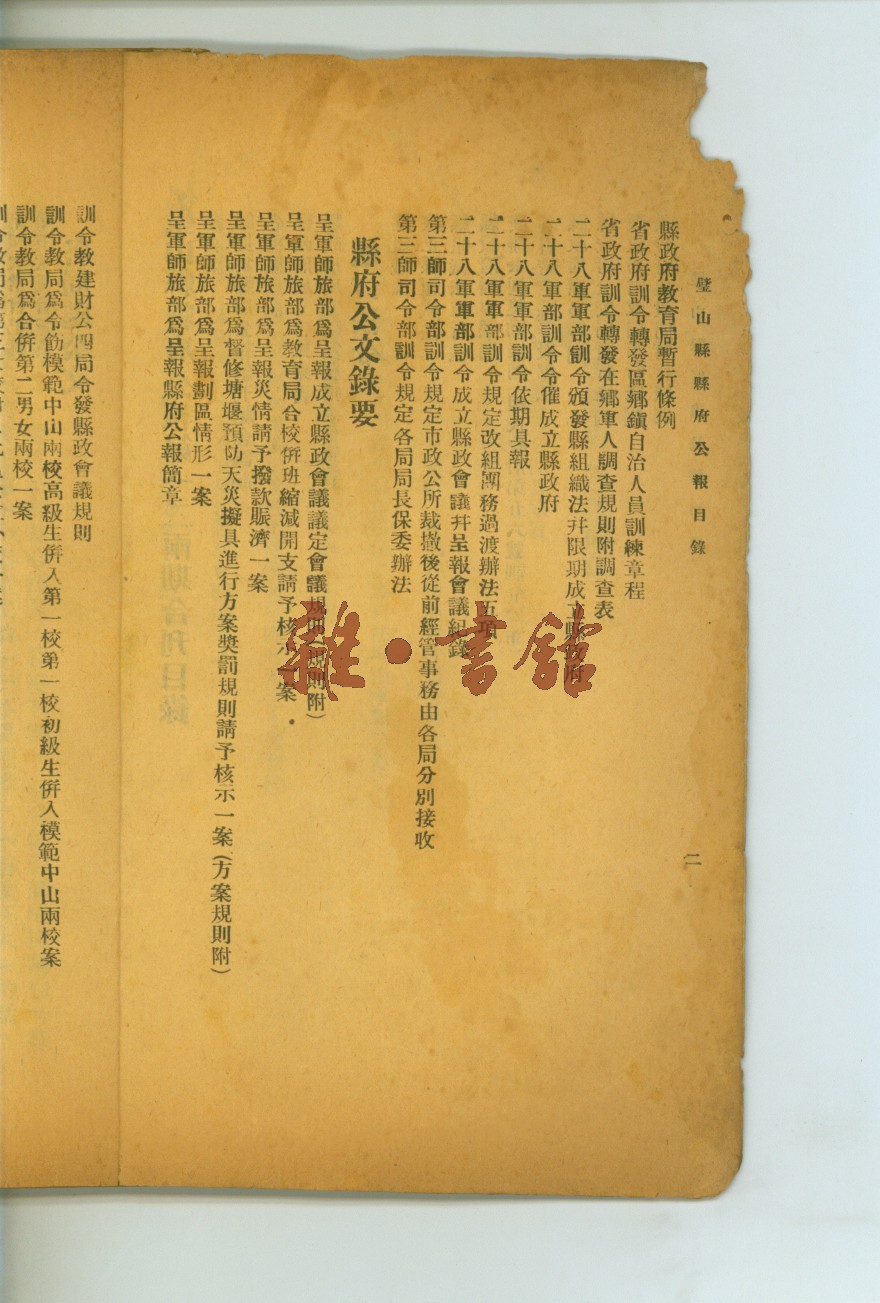 璧山縣縣府公報目錄
二
縣政府教育局暫行條例
省政府訓令轉發區鄉鎮自治人員訓練章程
省政府訓令轉發在鄉軍人調查規則附調查表
二十八軍軍部訓令頒發縣組織法幷限期成立縣政府
二十八軍部訓令令催成立縣政府
二十八軍軍部訓令依期具報
二十八軍軍部訓令規定改組團務過渡辦法五項
二十八軍軍部訓令成立縣政會議幷呈報會議紀錄
第三師司令部訓令規定市政公所裁撤後從前經管事務由各局分別接收
第三師司令部訓令規定各局局長保委辦法
縣府公文錄要
呈軍師旅部爲呈報成立縣政會議議定會議規則(規則附)
呈軍師旅部爲教育局合校倂班縮減開支請予核示一案
呈軍師旅部爲呈報災情請予撥款賑濟一案
呈軍師旅部爲督修塘堰預防天災擬具進行方案獎罰規則請予核示一案(方案規則附)
呈軍師旅部爲呈報劃區情形一案
呈軍師旅部爲呈報縣府公報簡章
訓令教建財公四局令發縣政會議規則
訓令教局爲令飭模範中山兩校高級生倂入第一校第一校初級生倂入模範中山兩校案
訓令教局爲合倂第二男女兩校一案
雜·書館